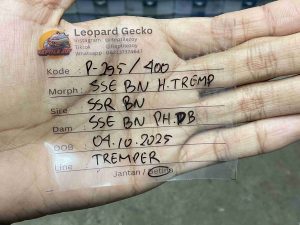 Leopard Gecko
Instagram
Tiktok
Whatsapp
Kode : P-295/400
Morph : SSE BN H.TREMP
Sire : SSR BN
Dam : SSE BN PH.DB
DOB : 04.10.2025
Line : TREMPER
Jantan / Betina